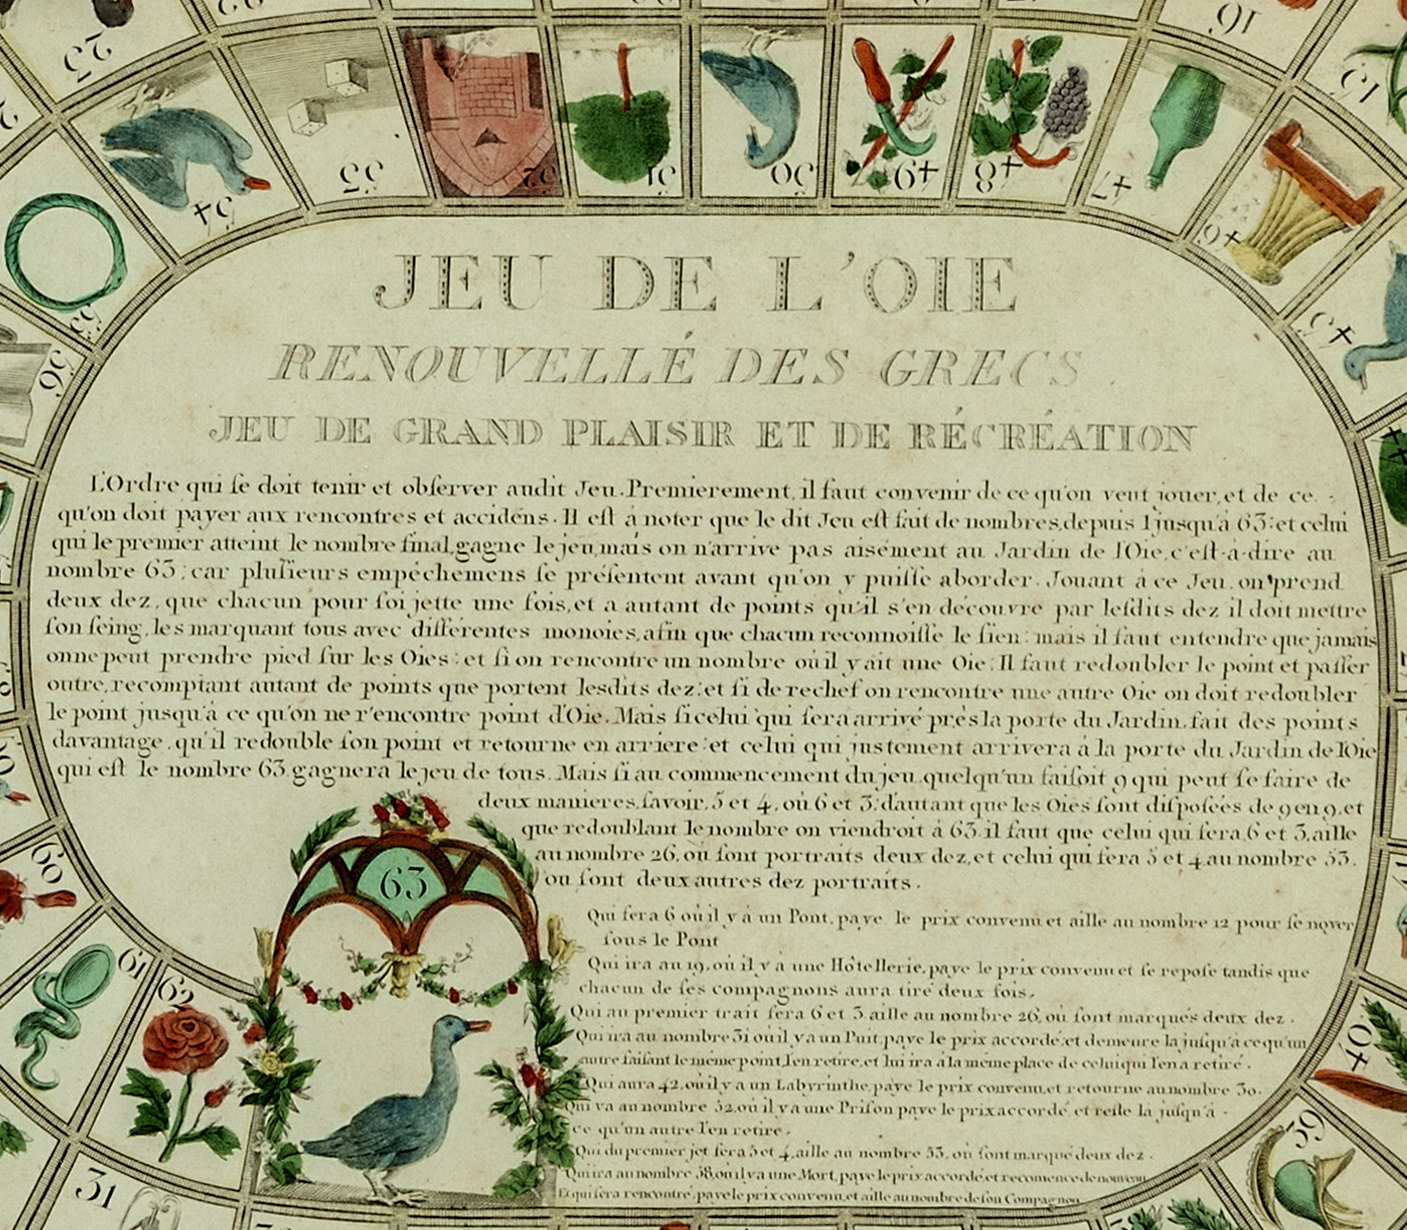 JEU DE L'OIE
RENOUVELLÉ DES GRECS.
JEU DE GRAND PLAISIR ET DE RÉCRÉATION
L'Ordre qui se doit tenir et observer audit Jeu. Premierement, il faut convenir de ce qu'on veut jouer, et de ce
qu'on doit payer aux rencontres et accidens. Il est à noter que le dit Jeu est fait de nombres, depuis 1 jusqu'à 63: et celui
qui le premier atteint le nombre final, gagne le jeu, mais on n'arrive pas aisément au Jardin de l'Oie, c'est-à-dire au
nombre 63; car plusieurs empêchemens se présentent avant qu'on y puisse aborder. Jouant à ce Jeu, on prend
deux dez, que chacun pour soi jette une fois, et a autant de points qu'il s'en découvre par lesdits dez il doit mettre
son seing, les marquant tous avec différentes monoies, afin que chacun reconnoisse le sien: mais il faut entendre que jamais
on ne peut prendre pied sur les Oies: et si on rencontre un nombre où il y ait une Oie, Il faut redoubler le point et passer
outre, recomptant autant de points que portent lesdits dez: et si de rechef on rencontre une autre Oie on doit redoubler
le point jusqu'à ce qu'on ne r'encontre point d'Oie. Mais si celui qui sera arrivé près la porte du Jardin, fait des points
davantage, qu'il redouble son point et retourne en arriere: et celui qui justement arrivera à la porte du Jardin de l'Oie
qui est le nombre 63, gagnera le jeu de tous. Mais si au commencement du jeu, quelqu'un faisoit 9 qui peut se faire de
deux manieres, savoir, 5 et 4, où 6 et 3; d'autant que les Oies sont disposées de 9 en 9, et
que redoublant le nombre on viendroit à 63, il faut que celui qui fera 6 et 3, aille
au nombre 26, où sont portraits deux dez, et celui qui fera 5 et 4 au nombre 53,
ou sont deux autres dez portraits.
Qui fera 6 où il y à un Pont, paye le prix convenu et aille au nombre 12 pour se noyer
sous le Pont
Qui ira au 19, où il y a une Hôtellerie, paye le prix convenu et se repose tandis que
chacun de ses compagnons aura tiré deux fois.
Qui au premier trait fera 6 et 3 aille au nombre 26, où sont marqués deux dez.
Qui ira au nombre 31 où il y a un Puit, paye le prix accordé et demeure la jusqu'à ce qu'un
autre faisant le même point l'en retire, et lui ira à la même place de celui qui l'en a retiré.
Qui aura 42, où il y a un Labyrinthe, paye le prix convenu, et retourne au nombre 30.
Qui va au nombre 52, où il y a une Prison paye le prix accordé et reste la jusqu'à -
ce qu'un autre l'en retire.
Qui du premier jet fera 5 et 4, aille au nombre 53, où sont marqué deux dez.
Qui ira au nombre 58, où il y a une Mort, paye le prix accordé et recomence de nouveau
Et qui sera rencontré, paye le prix convenu, et aille au nombre de son Compagnon
63
23
16
15
54
53
52
51
50
49
48
47
46
45
55
56
60
61
62
31
39
40